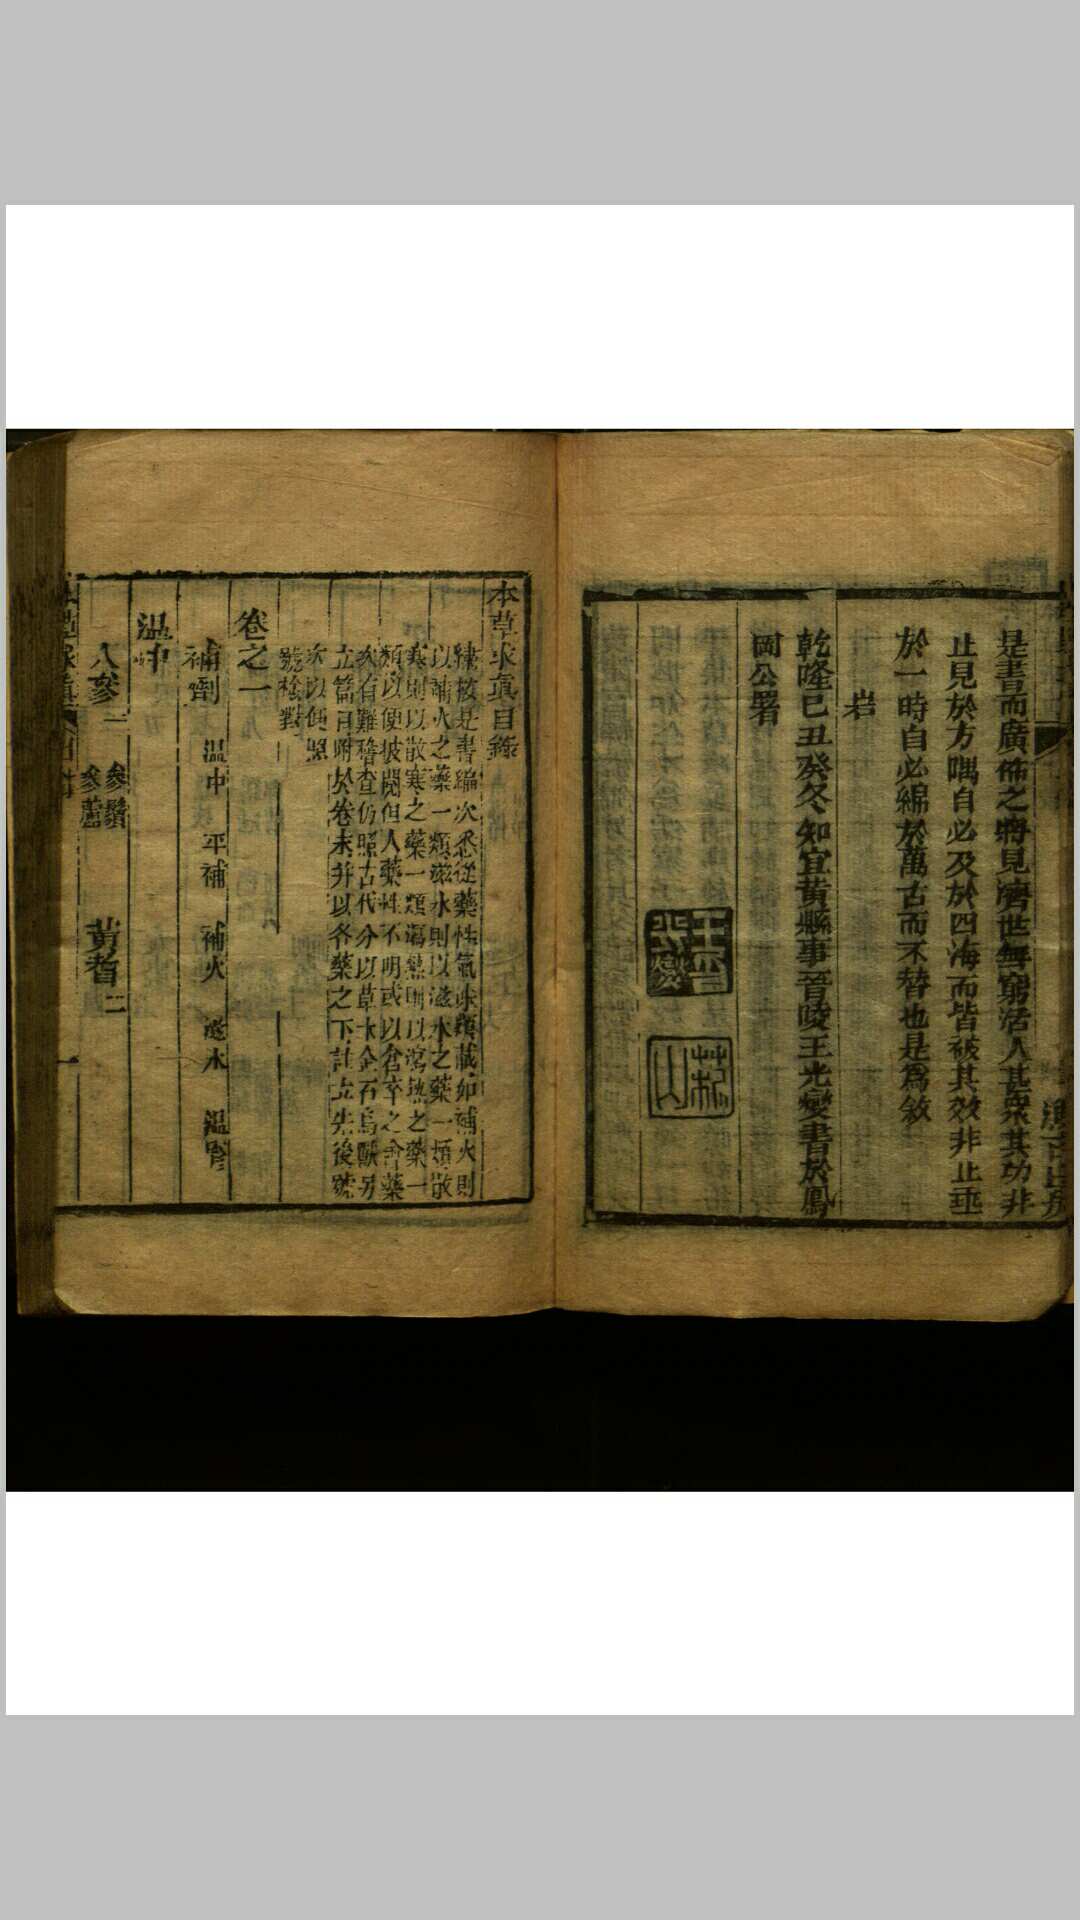 是書而廣佈之將見濟世無窮活人甚衆其功非
止見於方隅自必及於四海而皆被其效非止垂
於一時自必綿於萬古而不替也是爲敘
岩
乾隆己丑癸冬知宜黃縣事晉陵王光燮書於鳳
岡公署
本草求眞目錄
是書編次悉從藥性氣味類載如補火則
以補火之藥一類滋水則以滋水之藥一類散
寒則以散寒之藥一類瀉熱則以瀉熱之藥一
類以便披閱但人藥性不明或以倉卒之會藥
次有難稽查仍照古代分以草木金石鳥獸另
立篇目附於卷末并以各藥之下註立先後號
次以便照
號檢對
卷之一
補劑
温中
平補
補火
滋水
温腎
温中
人參一
參鬚
參蘆
黃耆二
一